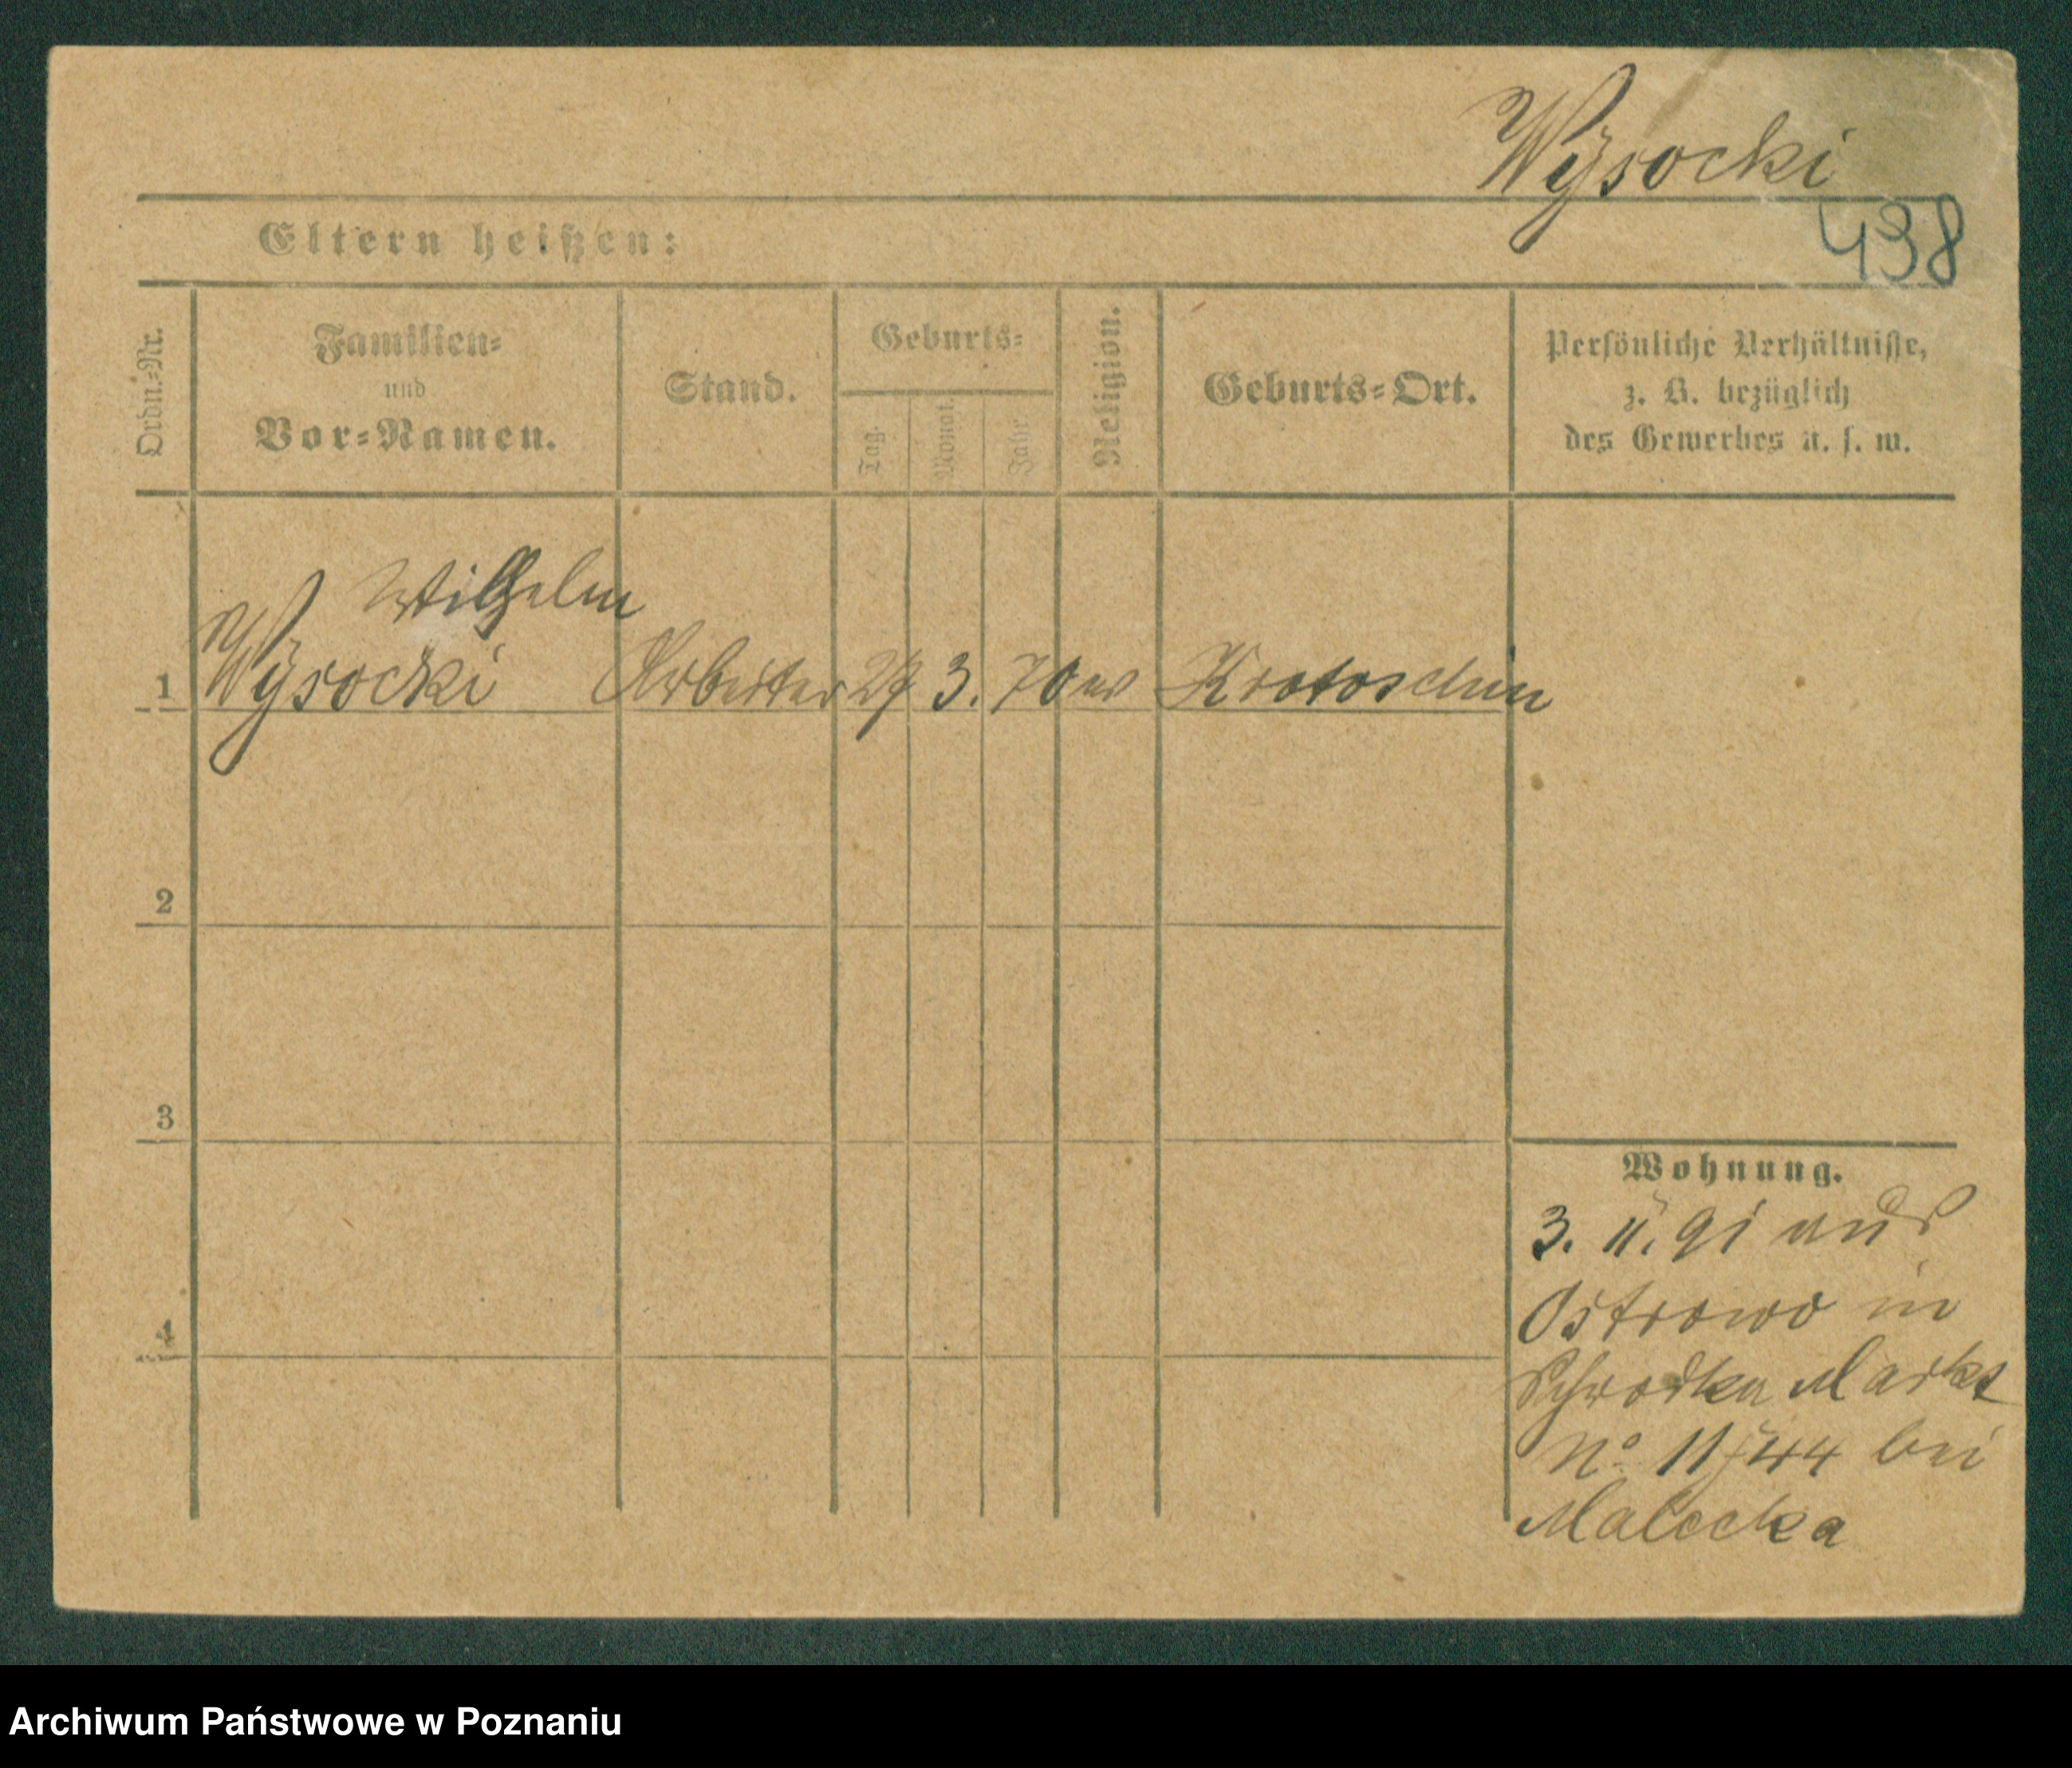 Wÿsocki
438
Eltern heißen:
Ordn.-Nr.
Familien-
und
Vor-Namen.
Stand.
Geburts-
Tag.
Monat.
Jahr
Religion.
Geburts-Ort.
Persönliche Verhältnisse,
z. B. bezüglich
des Gewerbes u. s. w.
Wilhelm
1 Wÿsocki Arbeiter 27 3. 70 ev Krotoschin
2
3
4
Wohnung.
3. 11. 91 aus
Ostrowo in
Schrodka Markt
No 11/44 bei
Malecka
Archiwum Państwowe w Poznaniu